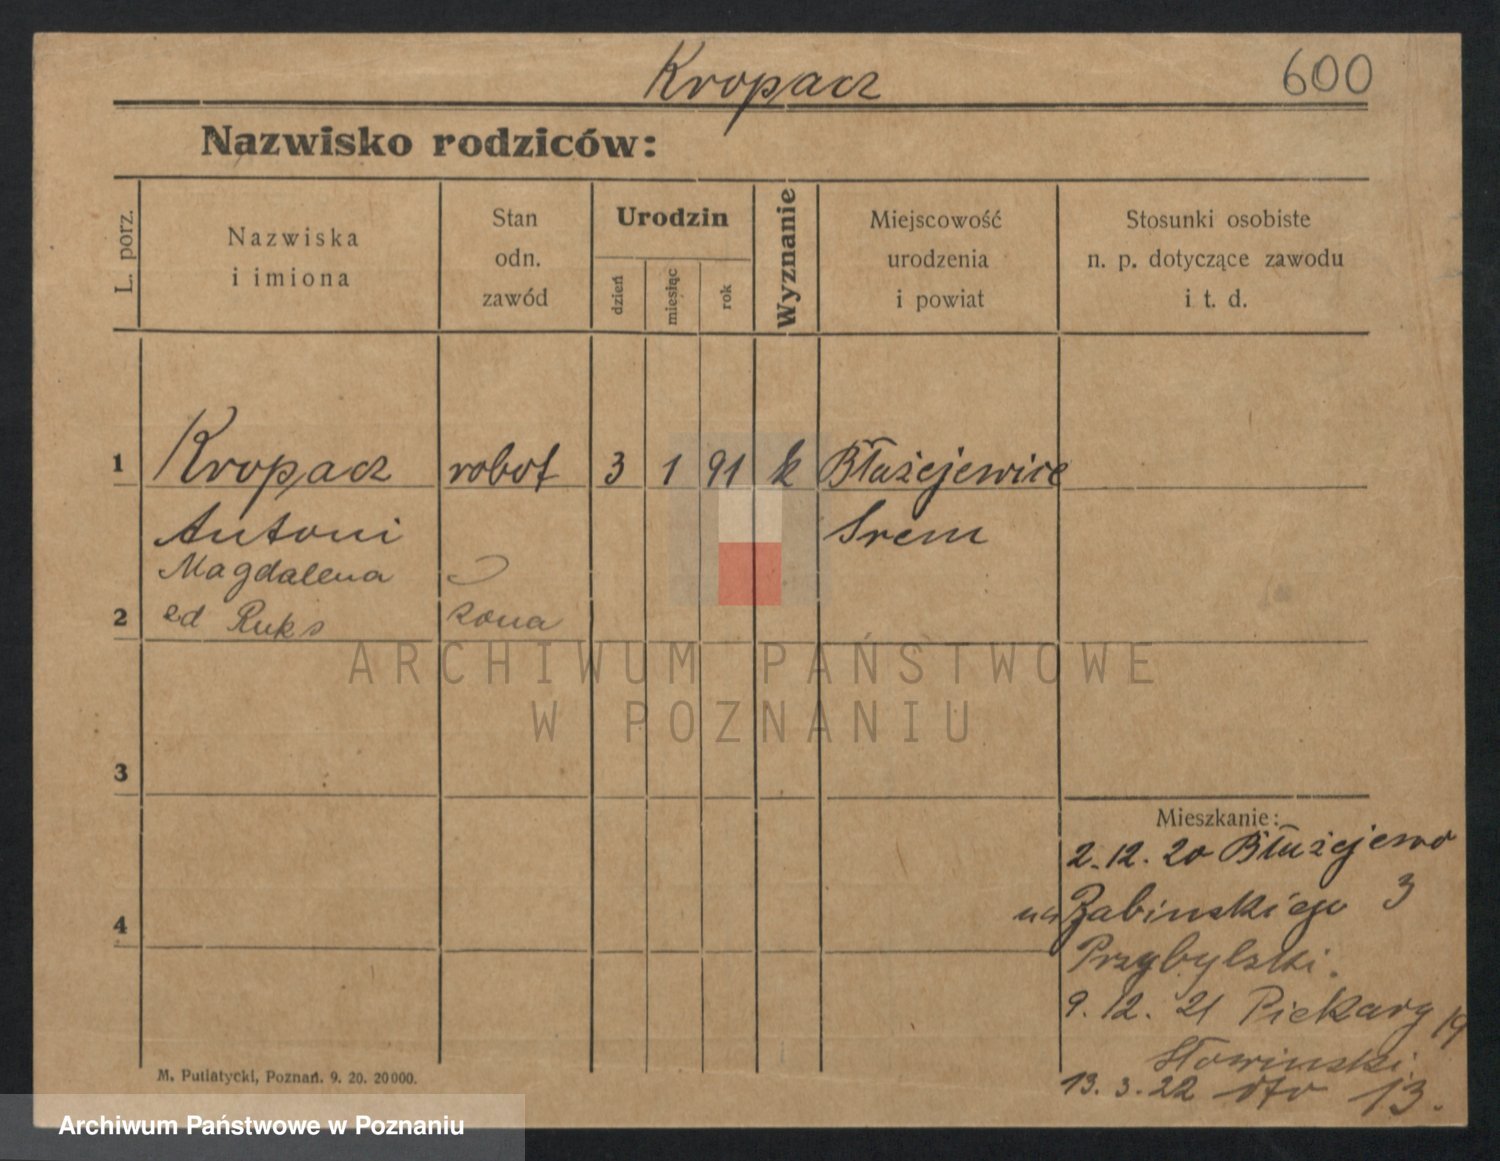 Kropacz 600
Nazwisko rodziców:
L. porz.
Nazwiska
i imiona
Stan
odn.
zawód
Urodzin
dzień
miesiąc
rok
Wyznanie
Miejscowość
urodzenia
i powiat
Stosunki osobiste
n. p. dotyczące zawodu
i t. d.
1 Kropacz robot 3 1 91 k Błażejewice
Antoni Srem
Magdalena
2 zd Ruks zona
ARCHIWUM PAŃSTWOWE
W POZNANIU
3
Mieszkanie:
2. 12. 20 Błażejewo
4
na Żabinskiego 3
Przybylski.
9. 12. 21 Piekary 19
Słowinski.
13. 3. 22 13.
M. Putiatycki, Poznań. 9. 20. 20000.
Archiwum Państwowe w Poznaniu